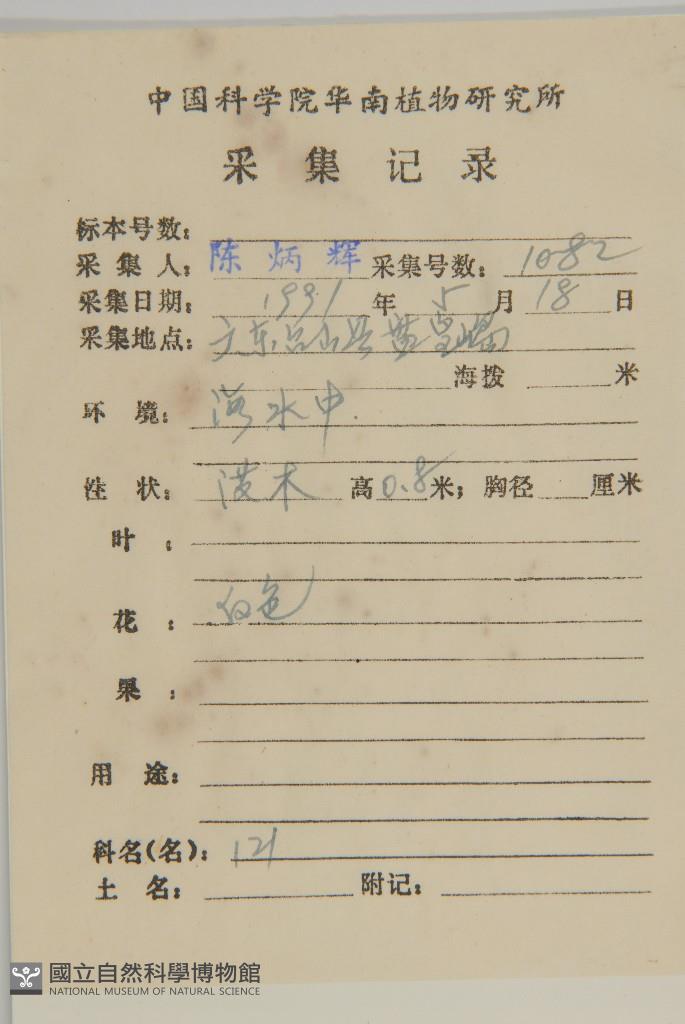 中国科学院华南植物研究所
采 集 记 录
标本号数:
采 集 人: 陈 炳 辉 采集号数: 1082
采集日期: 1991 年 5 月 18 日
采集地点:
海拨 米
环 境: 水中
性 状: 木 高 0.8 米; 胸径 厘米
叶 :
花 : 白色
果 :
用 途:
科名(名): 121
土 名: 附记:
國立自然科學博物館
NATIONAL MUSEUM OF NATURAL SCIENCE